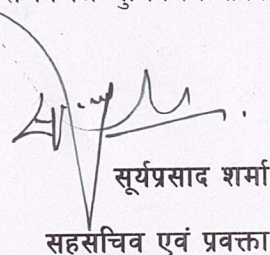 सूर्यप्रसाद शर्मा
सहसचिव एवं प्रवक्ता